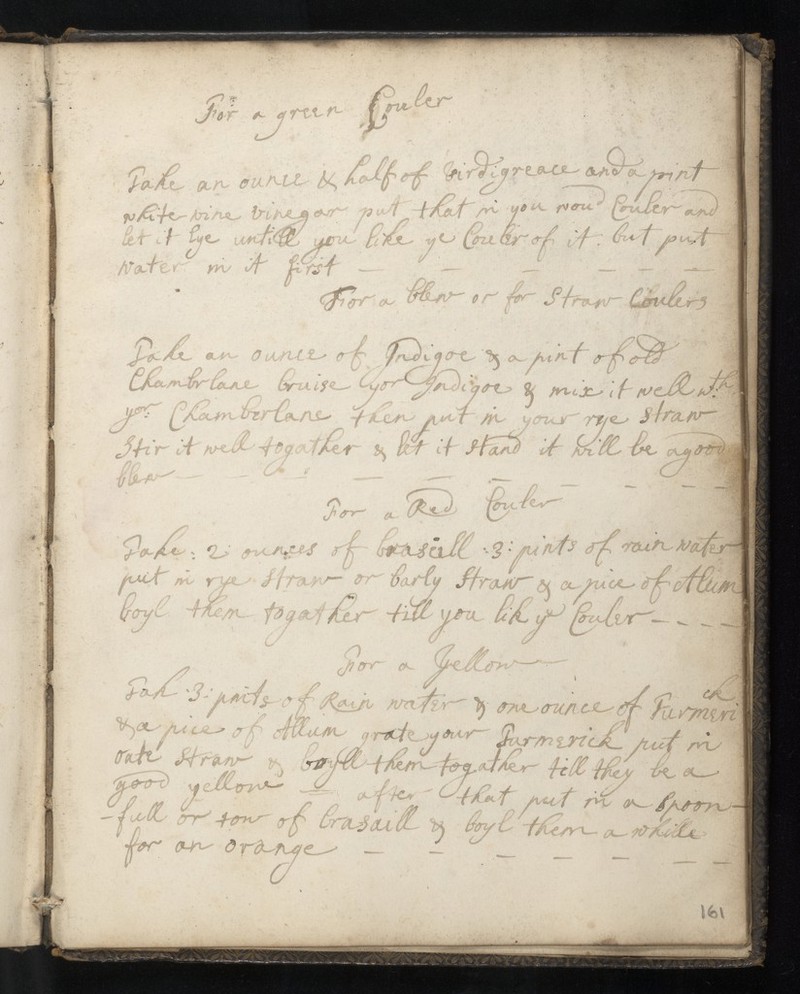 For a green Couler
Take an ounce & half of Virdigreace and a pint
white wine vinegar put that in you woud Couler and
let it lye untill you like ye Couler of it but put
water in it first — — — — — —
For a blew or for Straw Coulers
Take an ounce of Indigoe & a pint of old
Chambrlane bruise yor Indigoe & mix it well wth
yor Chamberlane then put in your rye Straw
Stir it well togather & let it stand it will be a good
blew — — — — — — — — —
For a Red Couler
Take : 2 : ounces of brasill : 3 : pints of rain water
put in rye straw or barly Straw & a pice of Alum
boyl them togather till you lik ye Couler — — — —
For a Yellow —
Tak : 3 : pnits of Rain water & one ounce of Turmerick
& a pice of Allum grate your Turmerick put in
oate Straw & boyll them togather till they be a
good yellow — after that put in a Spoon—
—full or tow of brasaill & boyl them a while
for an orange — — — — — — —
161